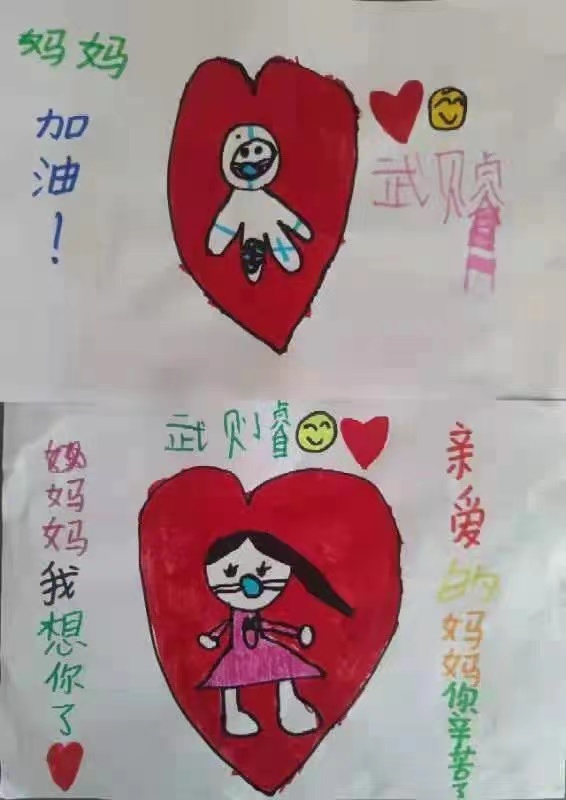 妈妈
加油！
武则睿
武则睿
妈妈我想你了
亲爱的妈妈你辛苦了